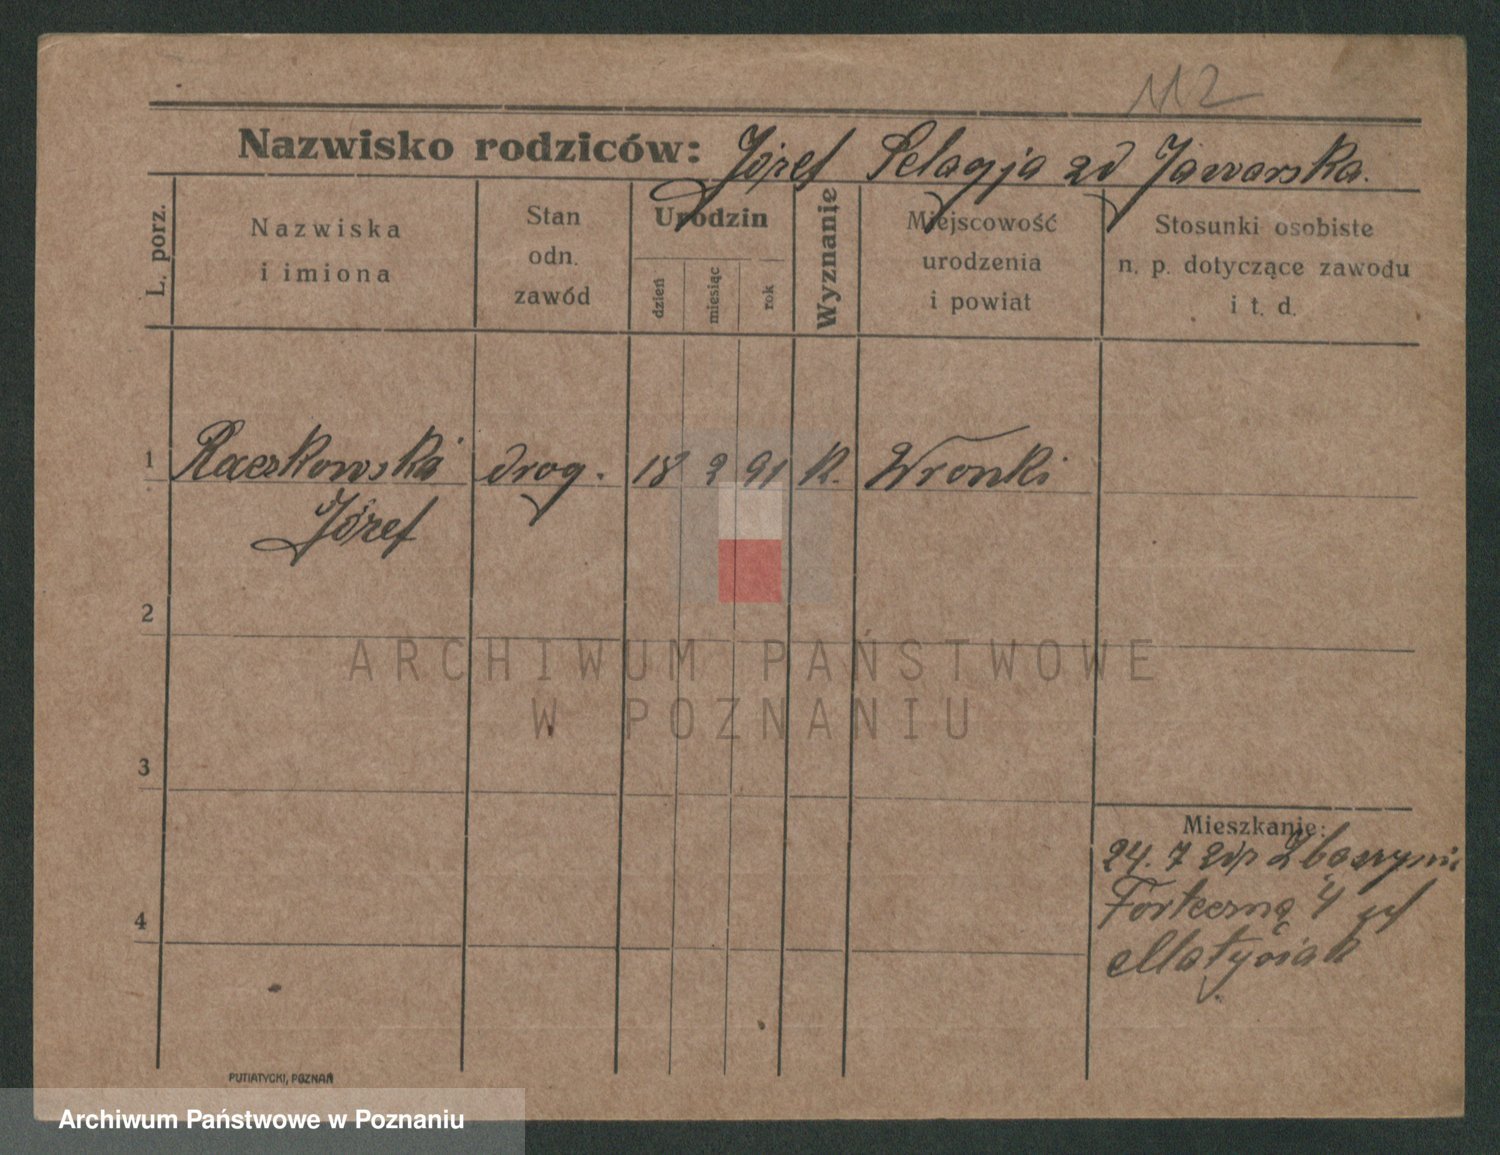 112
Nazwisko rodziców: Józef Pelagja zd Jaworska.
L. porz.
Nazwiska
i imiona
Stan
odn.
zawód
Urodzin
dzień
miesiąc
rok
Wyznanie
Miejscowość
urodzenia
i powiat
Stosunki osobiste
n. p. dotyczące zawodu
i t. d.
1 Raczkowski drog. 18 2 91 K. Wronki
Józef
2
3
4
Mieszkanie:
24. 7 Zbąszyni
Forteczna 4
Matysiak
PUTIATYCKI, POZNAŃ
ARCHIWUM PAŃSTWOWE
W POZNANIU
Archiwum Państwowe w Poznaniu